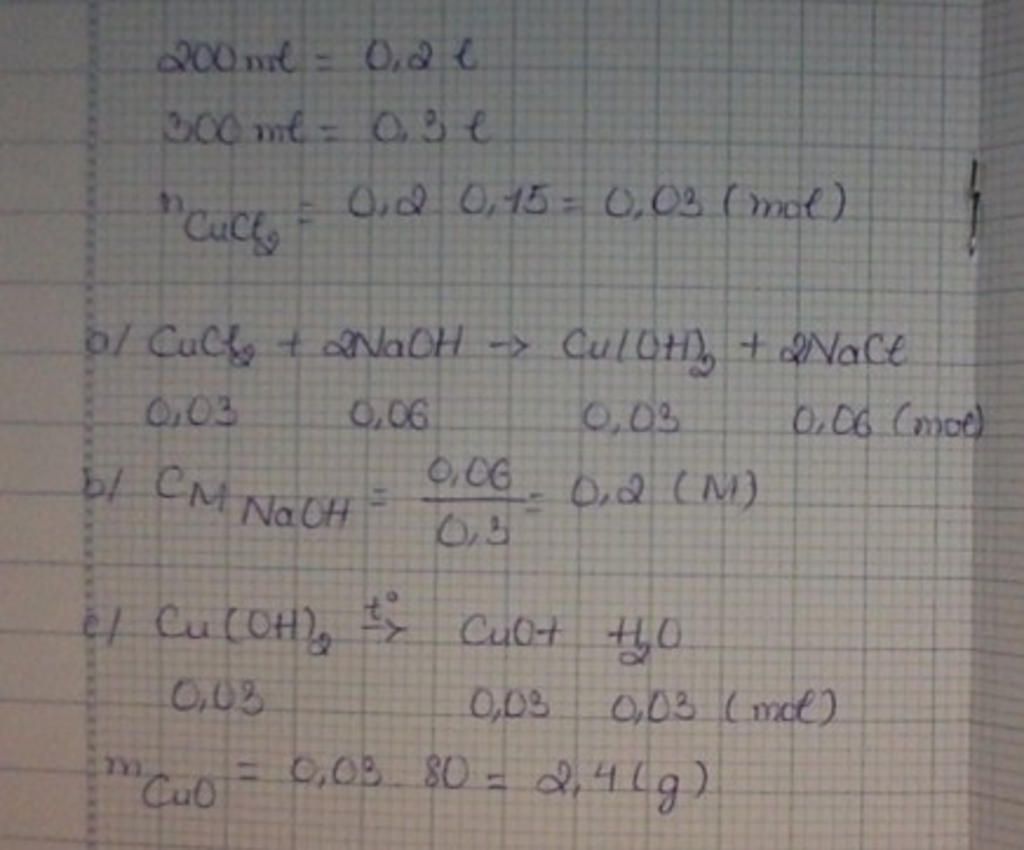 200ml = 0,2 l
300ml = 0,3 l
nCuCl₂ = 0,2 0,15 = 0,03 (mol)
a/ CuCl₂ + 2NaOH → Cu(OH)₂ + 2NaCl
0,03 0,06 0,03 0,06 (mol)
b/ CM NaOH = 0,06/0,3 = 0,2 (M)
c/ Cu(OH)₂ t°→ CuO + H₂O
0,03 0,03 0,03 (mol)
mCuO = 0,03 80 = 2,4 (g)